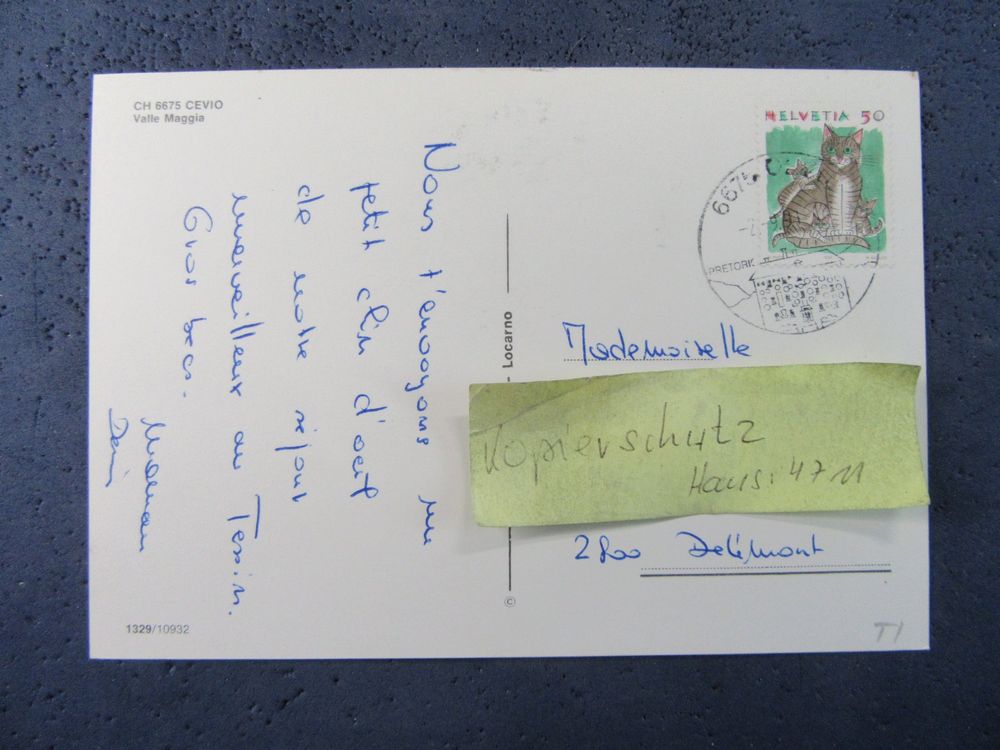 CH 6675 CEVIO
Valle Maggia
Nous t'envoyons un
petit clin d'oeil
de notre séjour
merveilleux au Tessin.
Gros becs.
Maman
1329/10932
Locarno
©
HELVETIA 50
6675
PRETORIO
Mademoiselle
Kopierschutz
Hans: 4711
2800 Delémont
TI